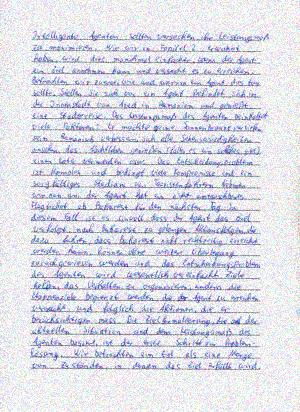 Intelligente Agenten sollten versuchen, ihr Leistungsmaß
zu maximieren. Wie wir in Kapitel 2 erwähnt
haben, wird dies manchmal einfacher, wenn der Agent
ein Ziel annehmen kann und versucht es zu erreichen.
Betrachten wir zuerst wie und warum ein Agent das tun
sollte. Stellen Sie sich vor, ein Agent befindet sich in
der Innenstadt von Arad in Rumänien und genießt
eine Studienreise. Das Leistungsmaß des Agenten beinhaltet
viele Faktoren: Er möchte seine Sonnenbräune
sein Rumänisch verbessern, sich alle Sehenswürdigkeiten
ansehen, das Nachtleben genießen
einen Kater vermeiden usw. Das Entscheidungsproblem
ist komplex und bedingt viele Kompromisse und ein
sorgfältiges Studium von
an, der Agent hat ein nicht
Flugticket ab Bukarest für den nächsten Tag. In
diesem Fall ist es sinnvoll, dass der Agent das Ziel
verfolgt, nach Bukarest zu gelangen. Aktionsfolgen, die
dazu führen, dass Bukarest nicht rechtzeitig erreicht
werden kann, können ohne weitere Überlegung
zurückgewiesen werden und das Entscheidungsproblem
des Agenten wird wesentlich vereinfacht. Ziele
helfen, das Verhalten zu organisieren, indem die
begrenzt werden, die der Agent zu erreichen
versucht und folglich die Aktionen, die er
berücksichtigen muss. Die Zielformulierung, die auf der
aktuellen Situation und dem Leistungsmaß des
Agenten basiert, ist der erste Schritt zur Problem-
lösung. Wir betrachten ein Ziel als eine Menge
von Zuständen, in denen das Ziel erfüllt wird.